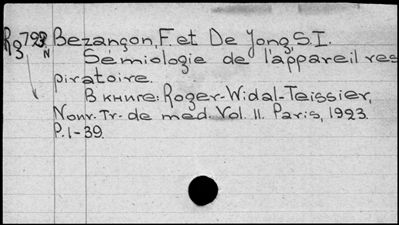 Rg 793 Bezançon, F. et De Jong, S.I.
N
Sémiologie de l'appareil res
piratoire.
В книге: Roger-Widal-Teissier,
Nouv. Tr. de med. Vol. II. Paris, 1923.
P. 1-39.